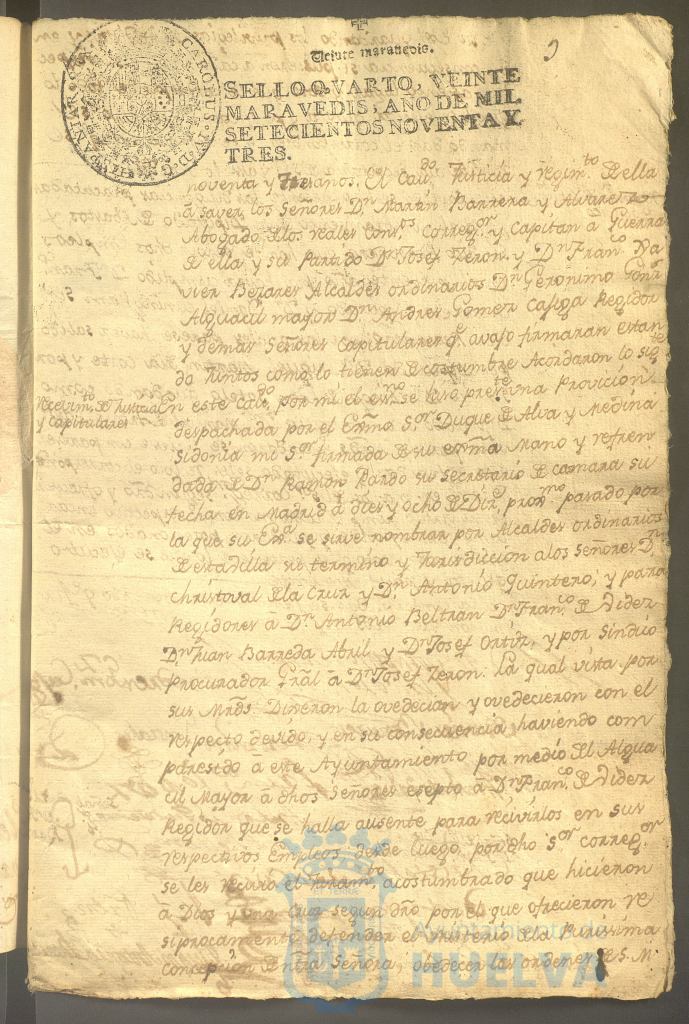 CAROLUS IV D G HISPANIAR
Veinte maravedis.
SELLO QVARTO, VEINTE
MARAVEDIS, AÑO DE MIL
SETECIENTOS NOVENTA Y
TRES.
noventa y Tres años. El Cavdo Justicia y regimto de ella
á saver los Señores Dn Martin Barrera y Alvarez
Abogado de los reales Consos corregor y Capitan á Guerra
de ella y su Partido Dn Josef Zeron y Dn Franco Xa
vier Bezares Alcaldes ordinarios Dn Geronimo
Alguacil mayor Dn Andres Gomez Regidor
y demas Señores Capitulares qe avajo firmaran estan
do Juntos como lo tienen de costumbre Acordaron lo sigte
Recevimto de Justicia
y Capitulares
En este Cavdo por mi el esno se leyo preste una Provicion
despachada por el Exmo Sor Duque de Alva y Medina
sidonia mi Sor firmada de su exma Mano y refren
dada de Dn Ramon Pardo su Secretario de camara su
fecha en Madrid á diez y ocho de Dizre proxmo pasado por
la que su Exa se sirve nombrar por Alcaldes ordinarios
de esta villa su termino y Jurisdiccion a los señores Dn
Christoval de la Cruz y Dn Antonio Quintero, y para
Regidores á Dn Antonio Beltran Dn Franco de
Dn Juan Barreda Abril y Dn Josef Ortiz, y por Sindico
Procurador Gral á Dn Josef Zeron. La qual vista por
sus Mrds. Dixeron la ovedecian y ovedecieron con el
respecto devido, y en su consecuencia haviendo com
paresido a este Ayuntamiento por medio del Algua
cil Mayor á dhos Señores esepto á Dn Franco de
Regidor que se halla ausente para recivirlos en sus
respectivos Empleos desde luego, por dho Sor corregor
se les recivio el Juramto acostumbrado que hicieron
á Dios y una Cruz segun dro por el que ofrecieron re
siprocamente defender el Misterio de la Purissima
Concepcion de Ntra Señora, obedecer las ordenes de S. M.
Ayuntamiento de
HUELVA